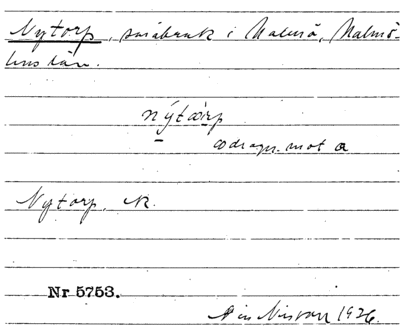 Nytorp, småbruk i Malmö, Malmö-
hus län.
nýtòrp
o dragn. mot a
Nytorp, K.
Nr 5753.
Nilsson 1926.